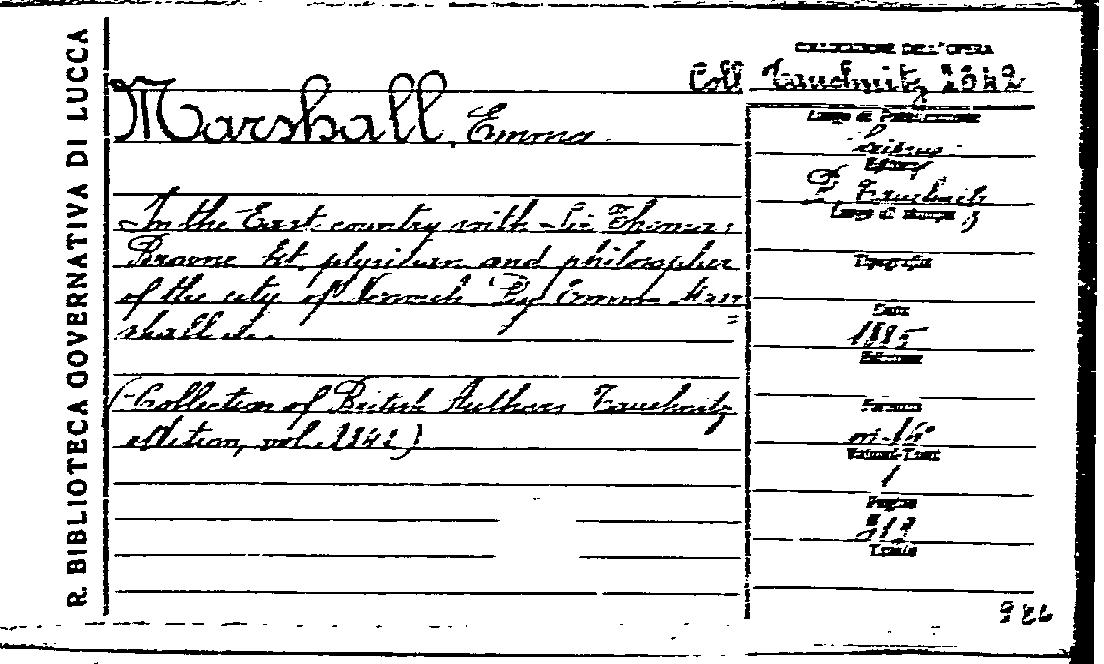 R. BIBLIOTECA GOVERNATIVA DI LUCCA
COLLOCAZIONE DELL'OPERA
Coll Tauchnitz
Marshall, Emma
In the East country with Sir Thomas
Browne kt. physitian and philosopher
of the city of Norwich By Emma Mar=
shall
(Collection of British Authors Tauchnitz
edition, vol.
Luogo di Pubblicazione
Editore
B. Tauchnitz
Luogo di stampa
Tipografia
Data
1885
Edizione
Formato
in-16°
Volumi-Tomi
1
Pagine
Tavole
986